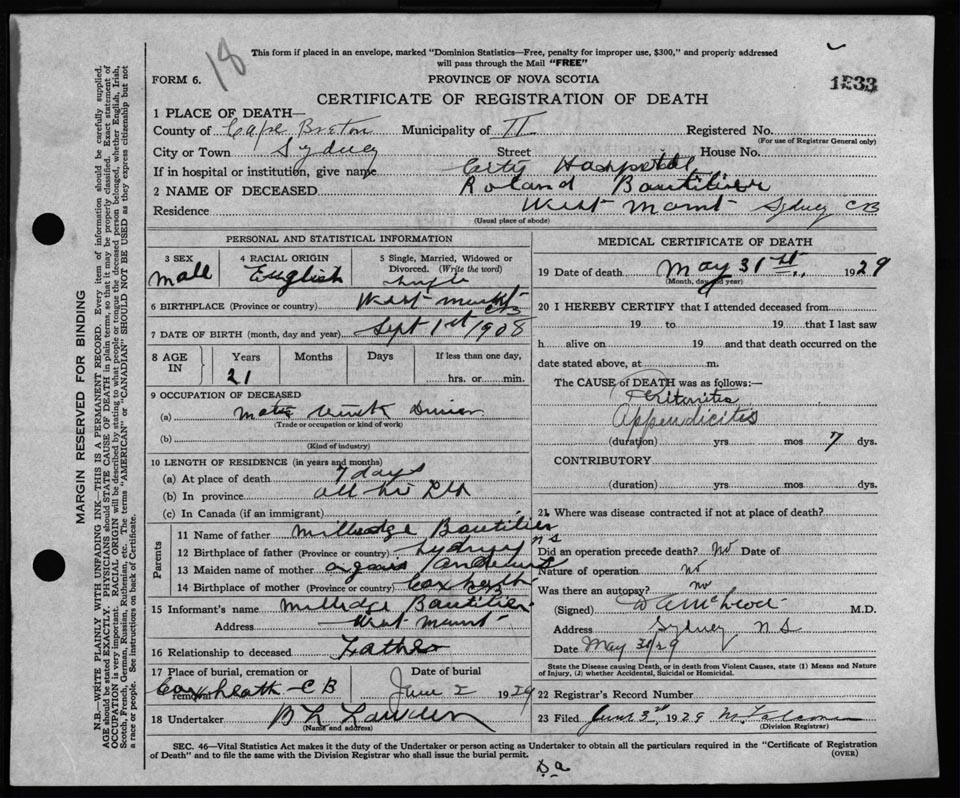 18
This form if placed in an envelope, marked "Dominion Statistics—Free, penalty for improper use, $300," and properly addressed
will pass through the Mail "FREE"
FORM 6.
PROVINCE OF NOVA SCOTIA
1533
CERTIFICATE OF REGISTRATION OF DEATH
1 PLACE OF DEATH—
County of Cape Breton Municipality of Registered No.
(For use of Registrar General only)
City or Town Sydney Street House No.
If in hospital or institution, give name City Hospital
2 NAME OF DECEASED Roland Boutilier
Residence West Mount Sydney CB
(Usual place of abode)
PERSONAL AND STATISTICAL INFORMATION
3 SEX Male
4 RACIAL ORIGIN English
5 Single, Married, Widowed or Divorced. (Write the word) Single
6 BIRTHPLACE (Province or country) West Mount CB
7 DATE OF BIRTH (month, day and year) Sept 1st 1908
8 AGE IN Years 21 Months Days If less than one day, hrs. or min.
9 OCCUPATION OF DECEASED
(a) Motor
(Trade or occupation or kind of work)
(b)
(Kind of industry)
10 LENGTH OF RESIDENCE (in years and months)
(a) At place of death 7 days
(b) In province all his life
(c) In Canada (if an immigrant)
Parents
11 Name of father Milledge Boutilier
12 Birthplace of father (Province or country) Sydney NS
13 Maiden name of mother
14 Birthplace of mother (Province or country) Coxheath CB
15 Informant's name Milledge Boutilier
Address West Mount
16 Relationship to deceased Father
17 Place of burial, cremation or removal Coxheath - CB
Date of burial June 2 1929
18 Undertaker
(Name and address)
MEDICAL CERTIFICATE OF DEATH
19 Date of death May 31st 1929
(Month, day and year)
20 I HEREBY CERTIFY that I attended deceased from
19 to 19 that I last saw
h alive on 19 and that death occurred on the
date stated above, at m.
The CAUSE of DEATH was as follows:—
Peritonitis
Appendicitis
(duration) yrs mos 7 dys.
CONTRIBUTORY
(duration) yrs mos dys.
21. Where was disease contracted if not at place of death?
Did an operation precede death? No Date of
Nature of operation no
Was there an autopsy? no
(Signed) M.D.
Address Sydney NS
Date May 31/29
State the Disease causing Death, or in death from Violent Causes, state (1) Means and Nature
of Injury, (2) whether Accidental, Suicidal or Homicidal.
22 Registrar's Record Number
23 Filed June 3rd, 1929
(Division Registrar)
SEC. 46—Vital Statistics Act makes it the duty of the Undertaker or person acting as Undertaker to obtain all the particulars required in the "Certificate of Registration
of Death" and to file the same with the Division Registrar who shall issue the burial permit.
(OVER)
MARGIN RESERVED FOR BINDING
N.B.—WRITE PLAINLY WITH UNFADING INK—THIS IS A PERMANENT RECORD. Every item of information should be carefully supplied.
AGE should be stated EXACTLY. PHYSICIANS should STATE CAUSE OF DEATH in plain terms, so that it may be properly classified. Exact statement of
OCCUPATION is very important. RACIAL ORIGIN will be described by stating to what people or tongue the deceased person belonged, whether English, Irish,
Scotch, French, German, Russian, Ruthenian, etc. The terms "AMERICAN" or "CANADIAN" SHOULD NOT BE USED as they express citizenship but not
a race or people. See instructions on back of Certificate.